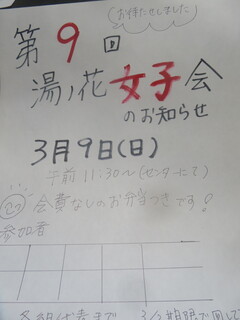 (お待たせしました)
第9回
湯ノ花女子会
のお知らせ
3月9日(日)
午前11:30~(センターにて)
会費なしのお弁当つきです!
参加者
各組代表まで 3/3期限で回して